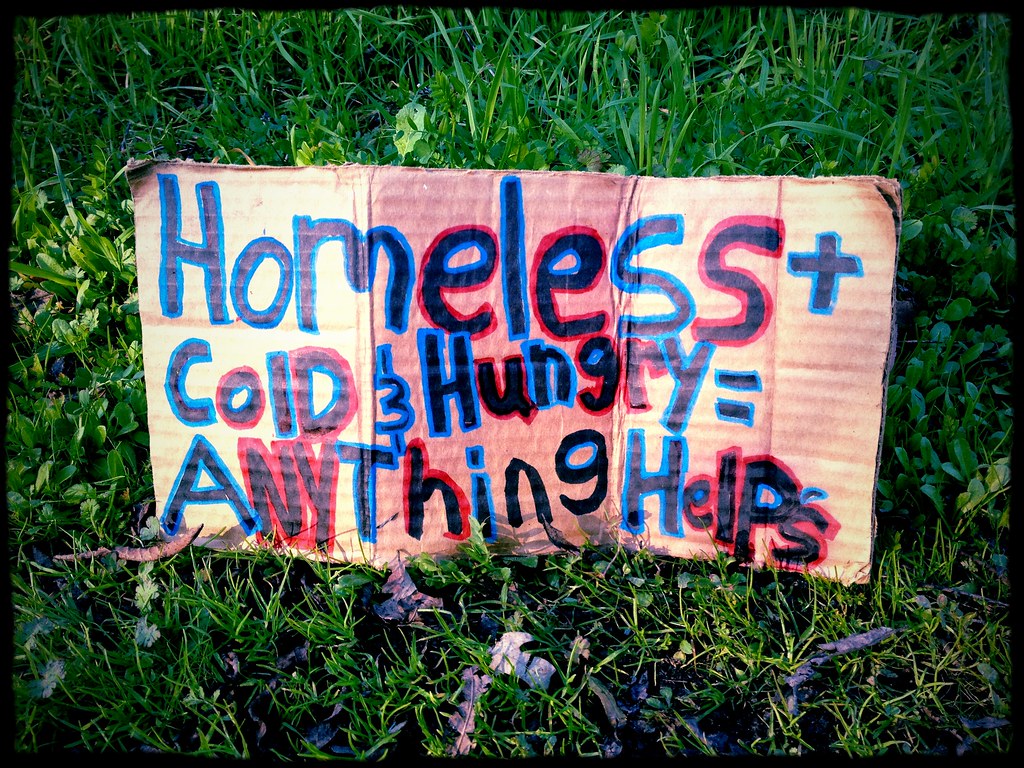 Homeless +
Cold & Hungry =
ANYThing Helps